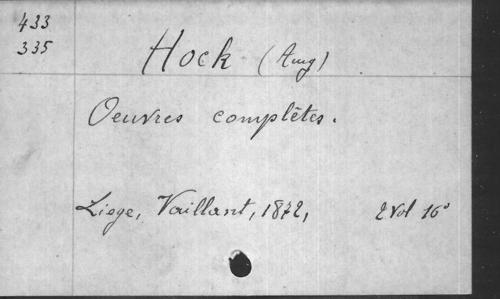 433
335
Hock (Aug)
Oeuvres complètes.
Liege, Vaillant, 1872, 2 Vol 16°